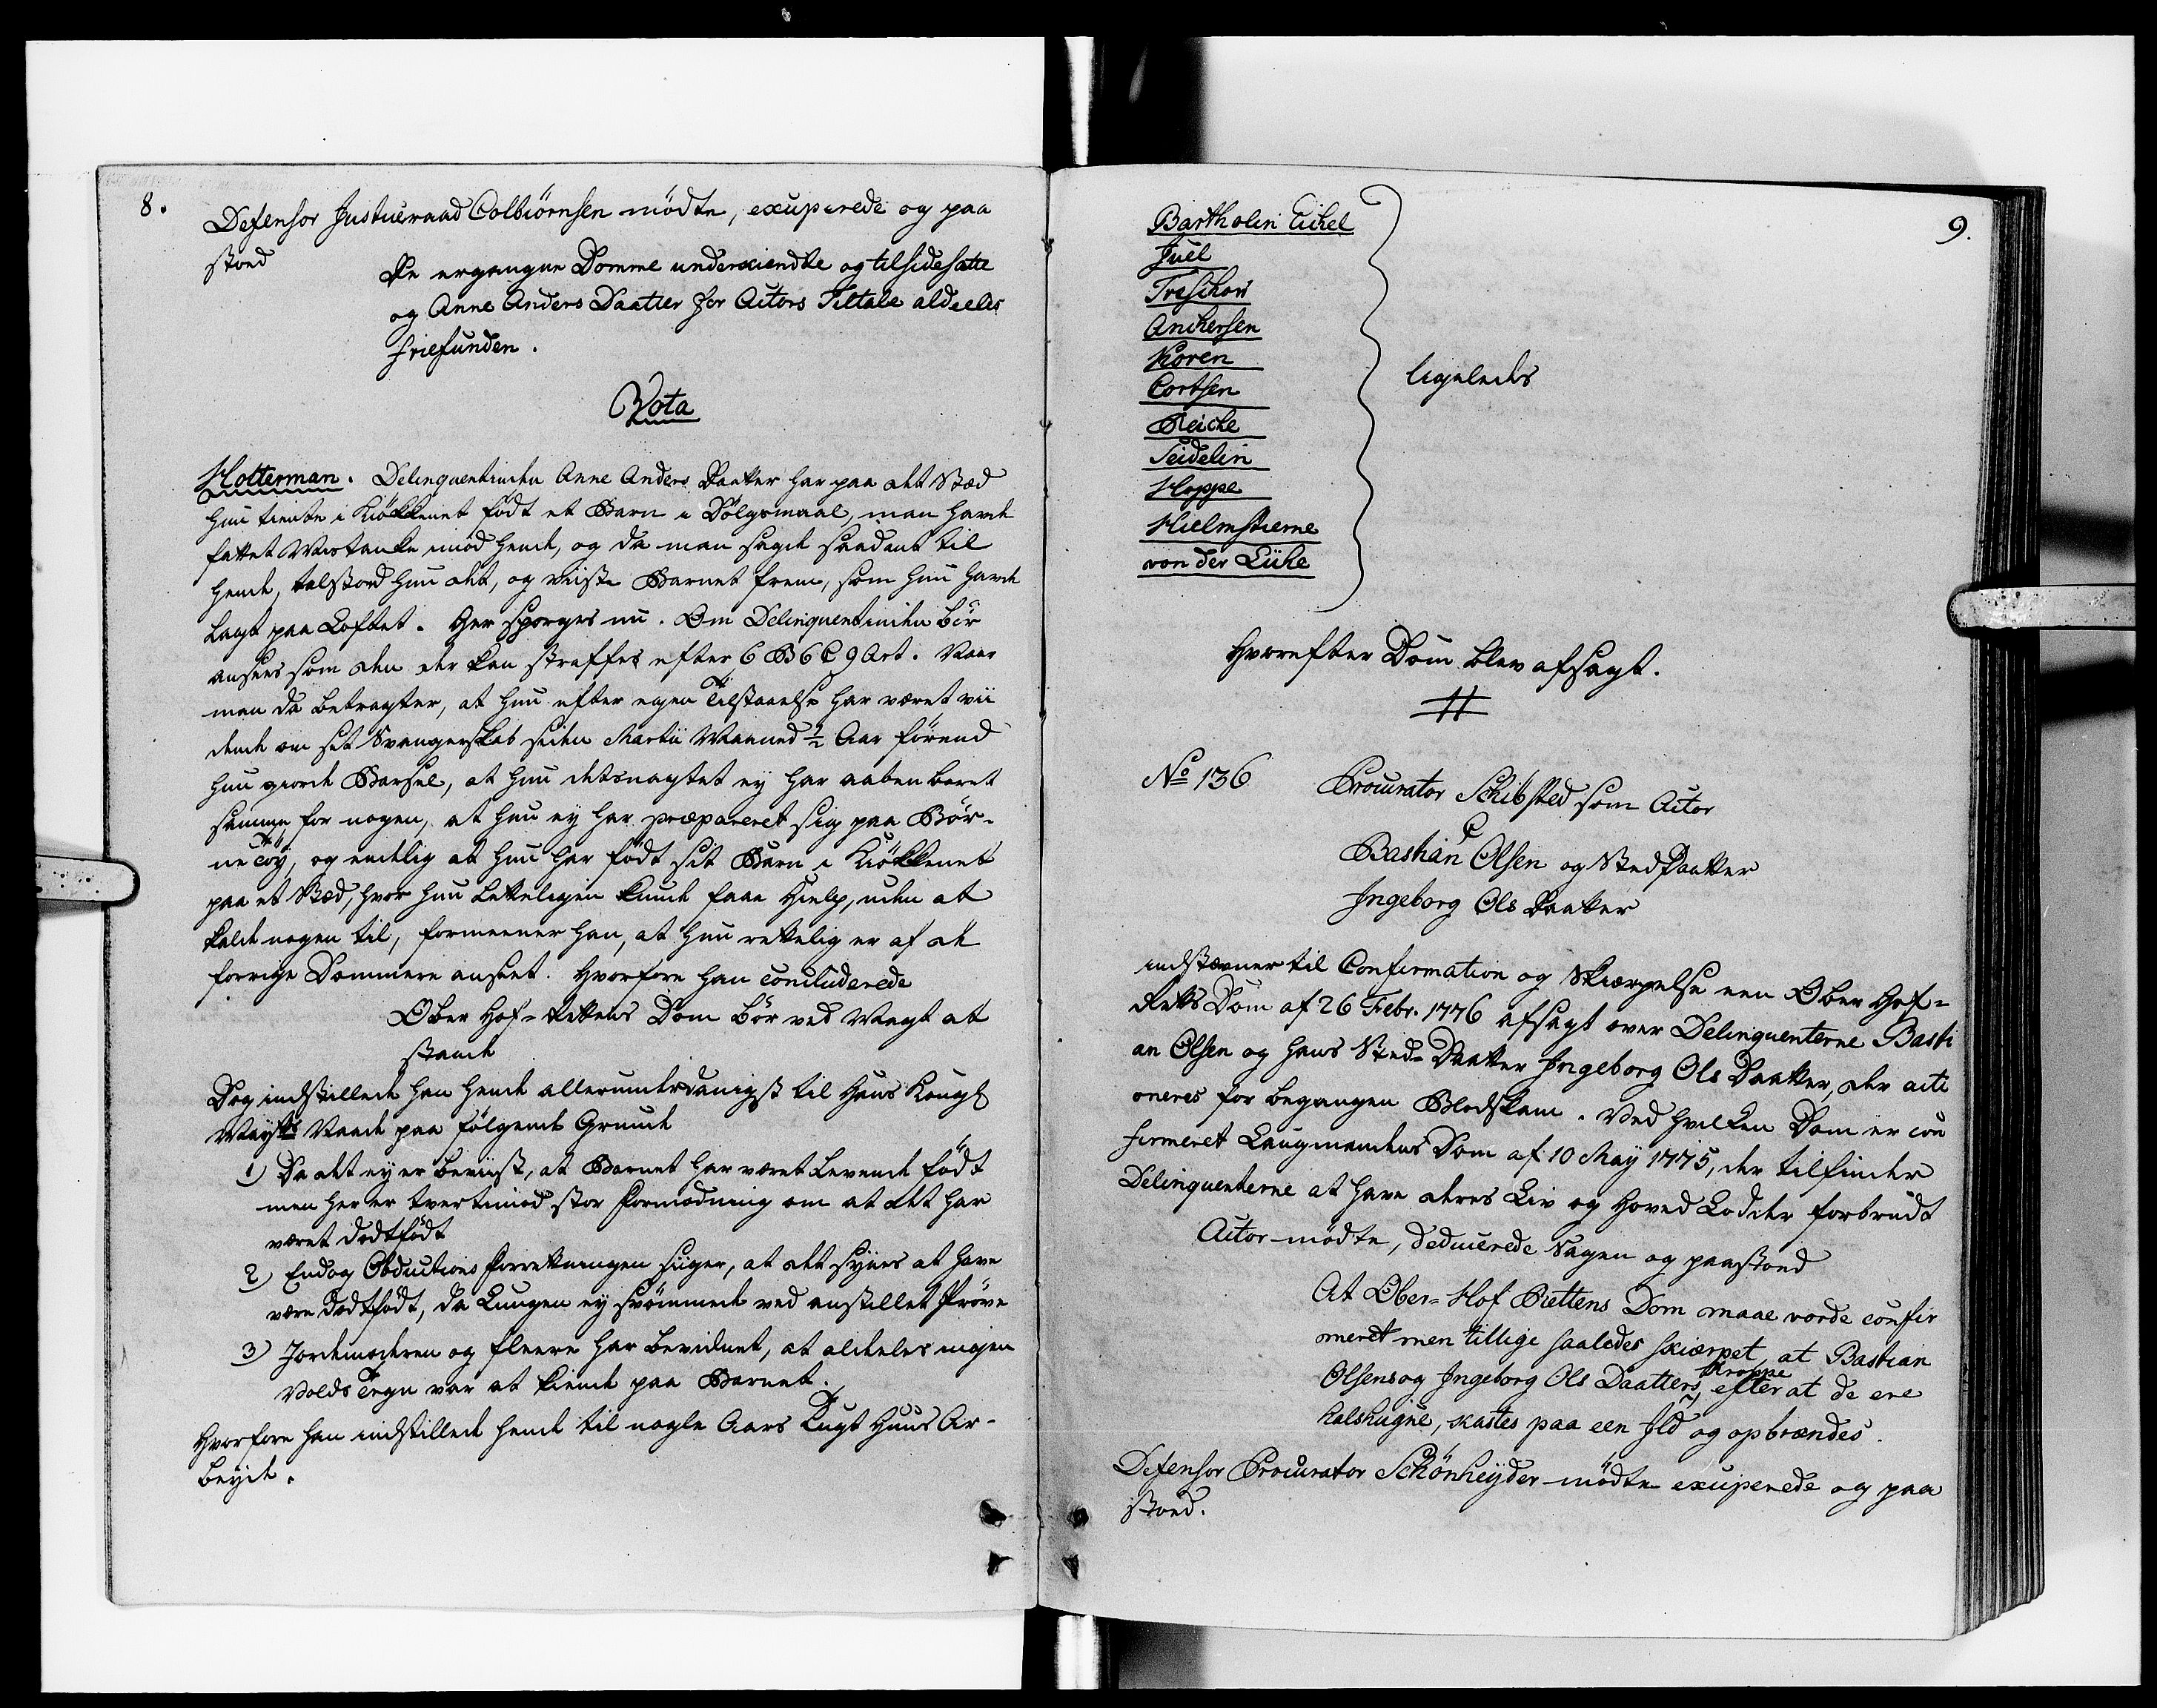 8.
Defensor Justiceraad Colbiørnsen mødte, exciperede og paa
stoed
De ergangne Domme underkiendte og tilsidesatte
og Anne Anders Daatter for Actors Tiltale aldeeles
friefunden.
Vota
Kolterman. Delinquentinden Anne Anders Daatter har paa det Stæd
hun tiente i Kiøkkenet født et Barn i Dølgsmaal, man havde
fattet Mistanke imod hende, og da man sagde saadant til
hende, tilstoed hun det, og viiste Barnet frem, som hun havde
lagt paa Loftet. Her spørges nu. Om Delinquentinden bør
ansees som den der kan straffes efter 6 B 6 C 9 Art. Naar
man da betragter, at hun efter egen Tilstaaelse har været vii
dende om sit Svangerskab siden Martii Maaned ½ Aar førend
hun giorde Barsel, at hun detsuagtet ey har aabenbaret
samme for nogen, at hun ey har præpareret sig paa Bør-
ne Tøy, og endelig at hun har født sit Barn i Kiøkkenet
paa et Stæd, hvor hun letteligen kunde faae Hielp, uden at
kalde nogen til, formeener han, at hun rettelig er af de
forrige Dommere anseet. Hvorfore han concluderede
Ober Hof-Rettens Dom bør ved Magt at
stande
Dog indstillede han hende allerunderdanigst til Hans Kongl
Mayts Naade paa følgende Grunde
1) Da det ey er beviist, at Barnet har været levende født
men her er tvertimod stor Formodning om at det har
været dødtfødt
2) Endog Obductions Forretningen siiger, at det synes at have
være dødtfødt, da Lungen ey svømmede ved anstillet Prøve
3) Jordemoderen og fleere har bevidnet, at aldeeles ingen
Volds Tegn var at kiende paa Barnet.
Hvorfore han indstillede hende til nogle Aars Tugt Huus Ar-
beyde.
9.
Bartholin Eichel
Juel
Treschow
Anchersen
Koren
Cortsen
Reiche
Seidelin
Hoppe
Hielmstierne
von der Lühe
ligeledes
Hvorefter Dom blev afsagt.
No 136
Procurator Schibsted som Actor
C
Bastian Olsen og Sted Daatter
Ingeborg Ols Daatter
indstævner til Confirmation og Skiærpelse een Ober Hof-
Retts Dom af 26 Febr. 1776 afsagt over Delinquenterne Basti
an Olsen og hans Sted-Daatter Ingeborg Ols Daatter, der acti
oneres for begangen Blodskam. Ved hvilken Dom er con
firmeret Laugmandens Dom af 10 May 1775, der tilfinder
Delinquenterne at have deres Liv og Hoved Lodder forbrudt
Actor mødte, deducerede Sagen og paastoed
At Ober-Hof Rettens Dom maae vorde confir
meret men tillige saaledes skiærpet at Bastian
Olsens og Ingeborg Ols Daatters Kroppe, efter at de ere
halshugne, kastes paa een Ild og opbrændes.
Defensor Procurator Schønheyder mødte exciperede og paa
stoed.